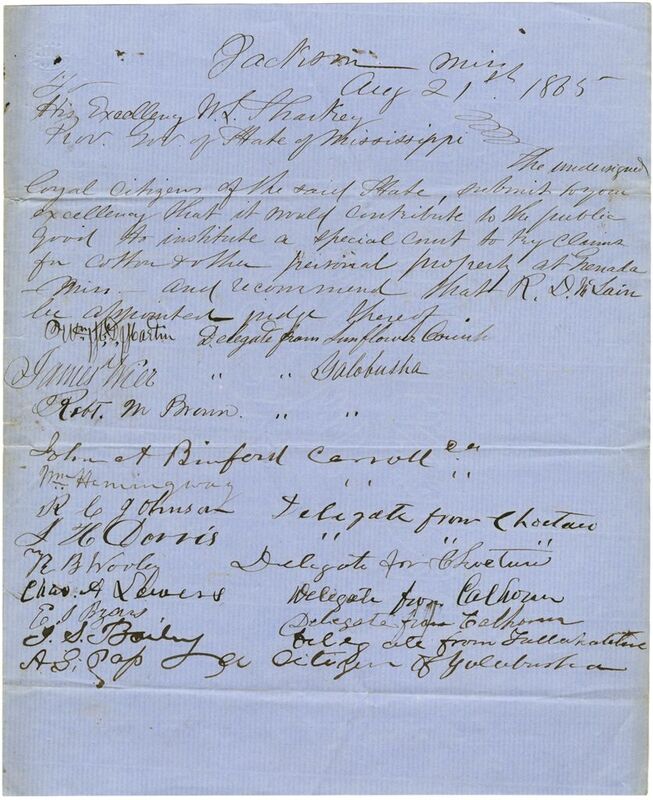 Jackson Miss
Aug 21st 1865
To
His Excellency W. L. Sharkey
Prov. Gov. of State of Mississippi
The undersigned
loyal citizens of the said State, submit to your
excellency that it would contribute to the public
good to institute a special court to try claims
for cotton & other personal property at Grenada
Miss. - and recommend that R. D. McLain
be appointed judge thereof
Martin Delegate from Sunflower County
James Weir " " Yalobusha
Robt. M Brown " "
John A Binford Carroll Co
Wm Hemingway " "
R C Johnson Delegate from Choctaw
J H Dorris " " "
R B Wooley Delegate for Choctaw
Chas. A Lewers Delegate from Calhoun
Delegate from Calhoun
J. S. Bailey Delegate from Tallahatchie
A. S. Pap a Citizen of Yalobusha